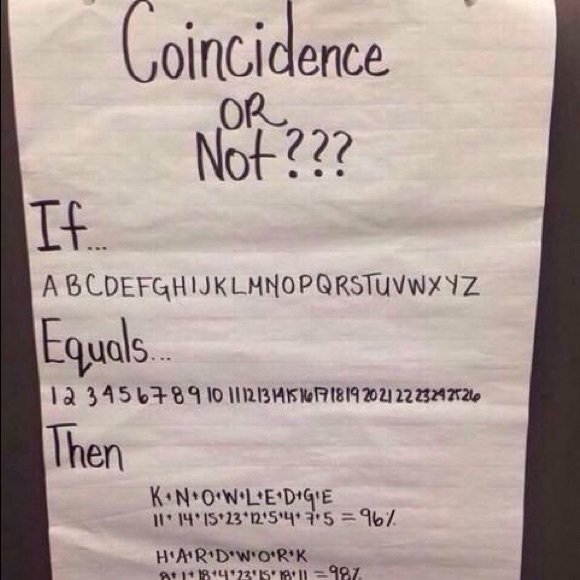 Coincidence
OR
Not???
If...
A B C D E F G H I J K L M N O P Q R S T U V W X Y Z
Equals...
1 2 3 4 5 6 7 8 9 10 11 12 13 14 15 16 17 18 19 20 21 22 23 24 25 26
Then
K+N+O+W+L+E+D+G+E
11+14+15+23+12+5+4+7+5=96%
H+A+R+D+W+O+R+K
8+1+18+4+23+15+18+11=98%